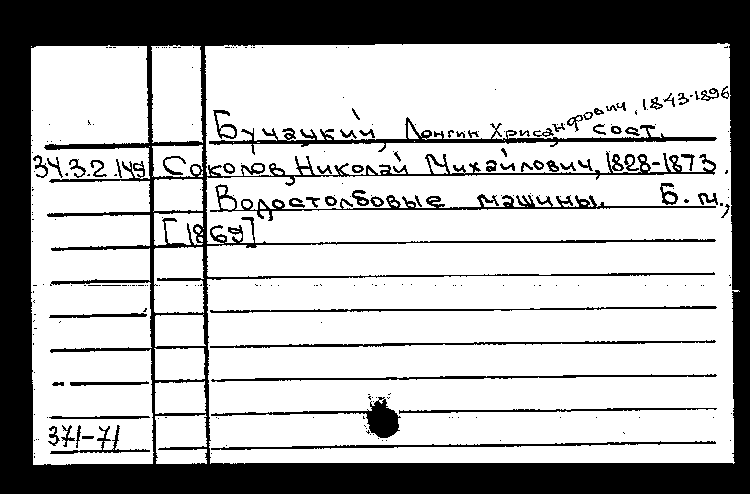 Бучацкий, Лонгин Хрисанфович, 1843-1896, сост.
34.3.2.149 Соколов, Николай Михайлович, 1828-1873.
Водостолбовые машины. Б.м.,
[1869].
371-71